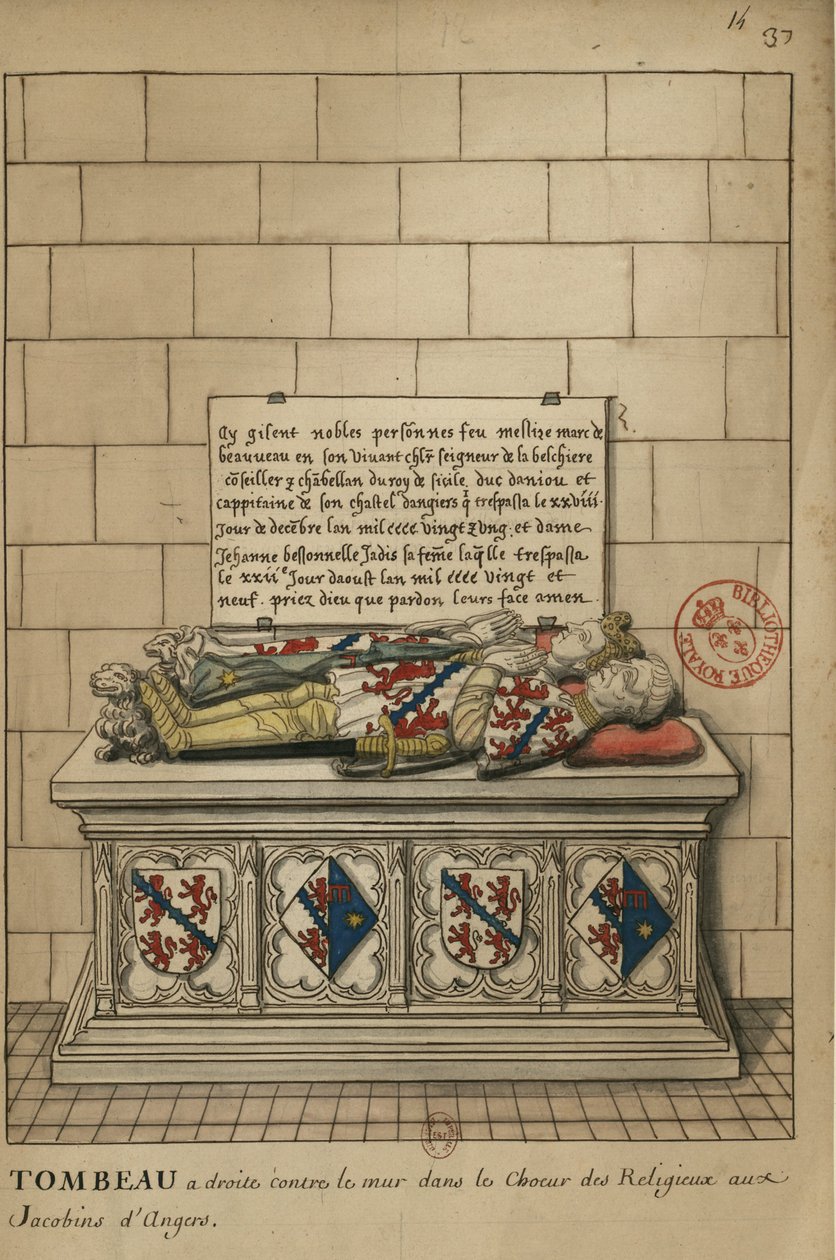 14
37
Cy gisent nobles persōnnes feu messire marc de
beauveau en son vivant chlr̄ seigneur de la beschiere
cōseiller ⁊ chābellan du roy de sicile duc daniou et
cappitaine de son chastel dangiers q̄ trespassa le xxviii.
Jour de decēbre lan mil cccc vingt ⁊ ung. et dame
Jehanne bessonnelle Jadis sa fem̄e laq̄lle trespassa
le xxiiᵉ Jour daoust lan mil cccc vingt et
neuf. priez dieu que pardon leurs face amen.
BIBLIOTHEQUE ROYALE
EST
TOMBEAU a droite contre le mur dans le Choeur des Religieux aux
Jacobins d'Angers.